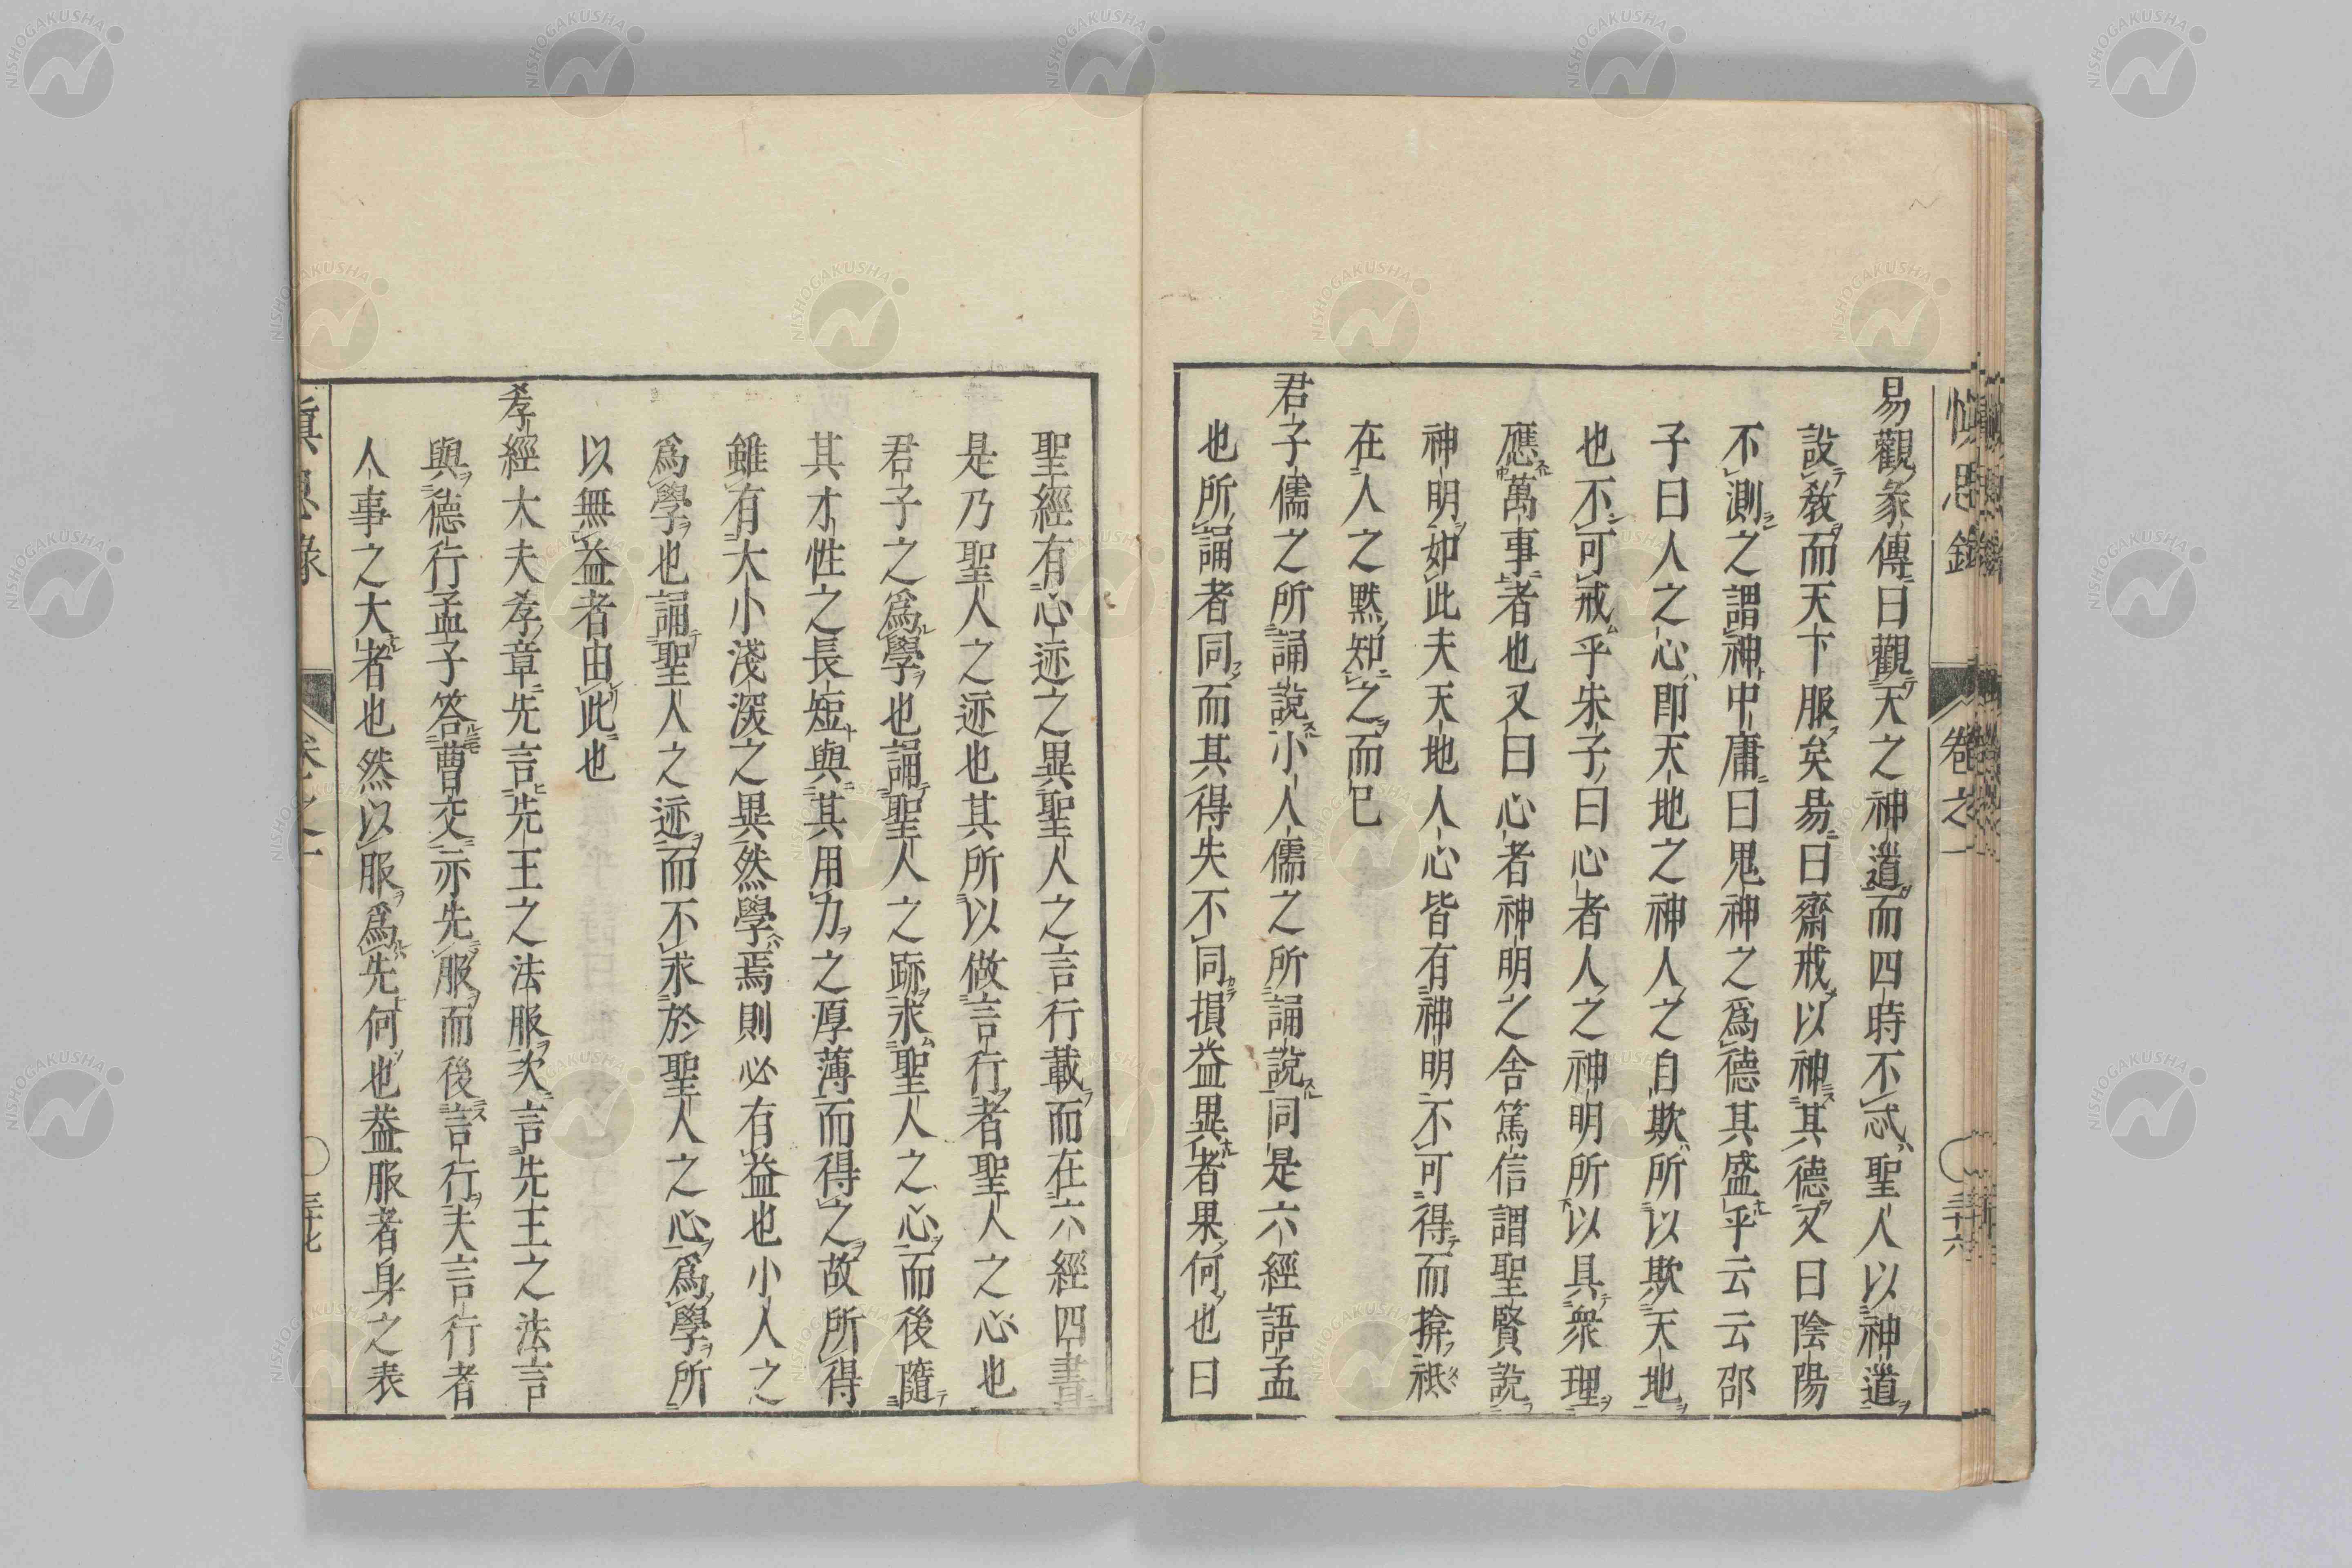 易觀彖傳曰觀天之神道而四時不忒聖人以神道
設教而天下服矣易曰齋戒以神其德又曰陰陽
不測之謂神中庸曰鬼神之爲德其盛乎云云邵
子曰人之心即天地之神人之自欺所以欺天地
也不可戒乎朱子曰心者人之神明所以具衆理
應萬事者也又曰心者神明之舍篤信謂聖賢說
神明如此夫天地人心皆有神明不可得而揜祗
在人之黙知之而已
君子儒之所誦說小人儒之所誦說同是六經語孟
也所誦者同而其得失不同損益異者果何也曰
聖經有心迹之異聖人之言行載而在六經四書
是乃聖人之迹也其所以做言行者聖人之心也
君子之爲學也誦聖人之跡求聖人之心而後隨
其才性之長短與其用力之厚薄而得之故所得
雖有大小淺深之異然學焉則必有益也小人之
爲學也誦聖人之迹而不求於聖人之心爲學所
以無益者由此也
孝經大夫孝章先言先王之法服次言先王之法言
與德行孟子答曹交亦先服而後言行夫言行者
人事之大者也然以服爲先何也蓋服者身之表
愼思錄
卷之一
三十六
三十七
NISHOGAKUSHA